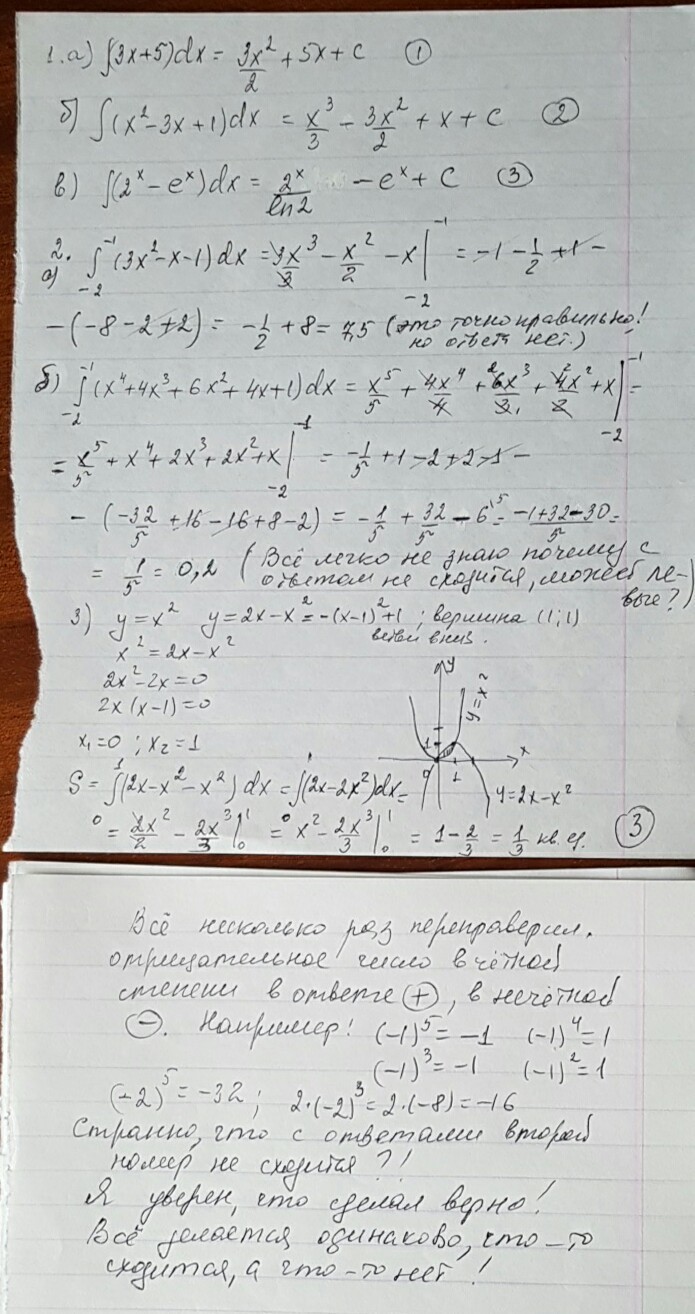 1.а) ∫(3x+5)dx = 3x²/2 + 5x + c ①
б) ∫(x²-3x+1)dx = x³/3 - 3x²/2 + x + c ②
в) ∫(2ˣ-eˣ)dx = 2ˣ/ln2 - eˣ + C ③
2.
а) ∫₋₂⁻¹(3x²-x-1)dx = 3x³/3 - x²/2 - x |₋₂⁻¹ = -1 - 1/2 + 1 -
- (-8-2+2) = -1/2 + 8 = 7,5 (это точно правильно!
но ответа нет.)
б) ∫₋₂⁻¹(x⁴+4x³+6x²+4x+1)dx = x⁵/5 + 4x⁴/4 + 6x³/3 + 4x²/2 + x |₋₂⁻¹ =
= x⁵/5 + x⁴ + 2x³ + 2x² + x |₋₂⁻¹ = -1/5 + 1 - 2 + 2 - 1 -
- (-32/5 + 16 - 16 + 8 - 2) = -1/5 + 32/5 - 6 = (-1+32-30)/5 =
= 1/5 = 0,2 (Всё легко не знаю почему с
ответом не сходится, может ле-
вые?)
3) y = x² y = 2x - x² = -(x-1)² + 1 ; вершина (1;1)
ветви вниз.
x² = 2x - x²
2x² - 2x = 0
2x(x-1) = 0
x₁ = 0 ; x₂ = 1
y
y = x²
1
x
0
1
y = 2x - x²
S = ∫₀¹(2x - x² - x²)dx = ∫₀¹(2x - 2x²)dx =
= 2x²/2 - 2x³/3 |₀¹ = x² - 2x³/3 |₀¹ = 1 - 2/3 = 1/3 кв. ед. ③
Всё несколько раз переправерил.
отрицательное число в чётной
степени в ответе ⊕, в нечётной
⊖. Например! (-1)⁵ = -1 (-1)⁴ = 1
(-1)³ = -1 (-1)² = 1
(-2)⁵ = -32 ; 2·(-2)³ = 2·(-8) = -16
Странно, что с ответами второй
номер не сходится?!
Я уверен, что сделал верно!
Всё делается одинаково, что-то
сходится, а что-то нет!